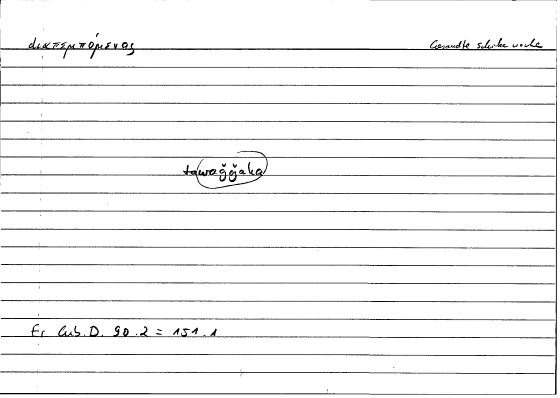 διαπεμπόμενος
Gesandte schicken
tawaǧǧaha
Er Gub. D. 90.2 = 151.1